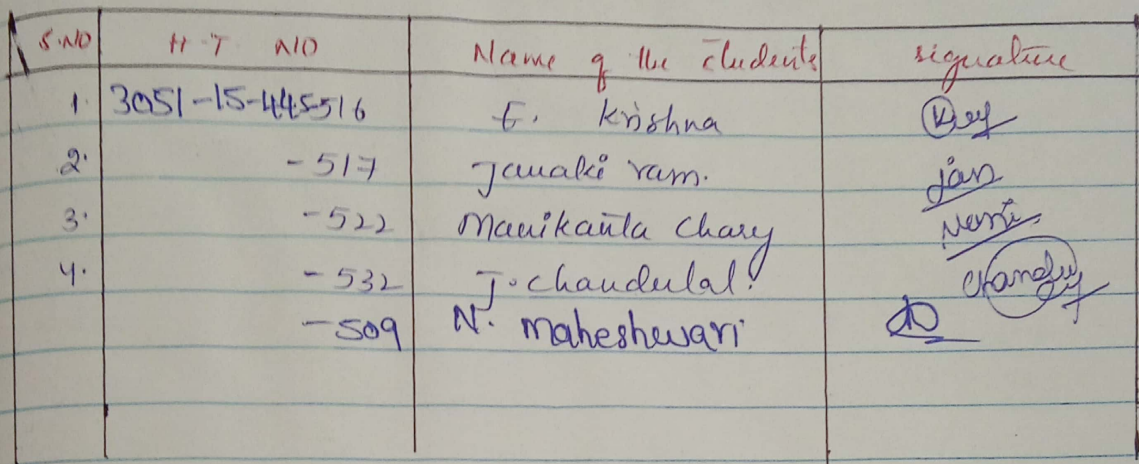 S.NO H.T NO Name of the students signature
1. 3051-15-445-516 E. Krishna
2. -517 Janaki ram. jan
3. -522 Manikanta Chary
4. -532 J. chandulal. Chandu
-509 N. Maheshwari